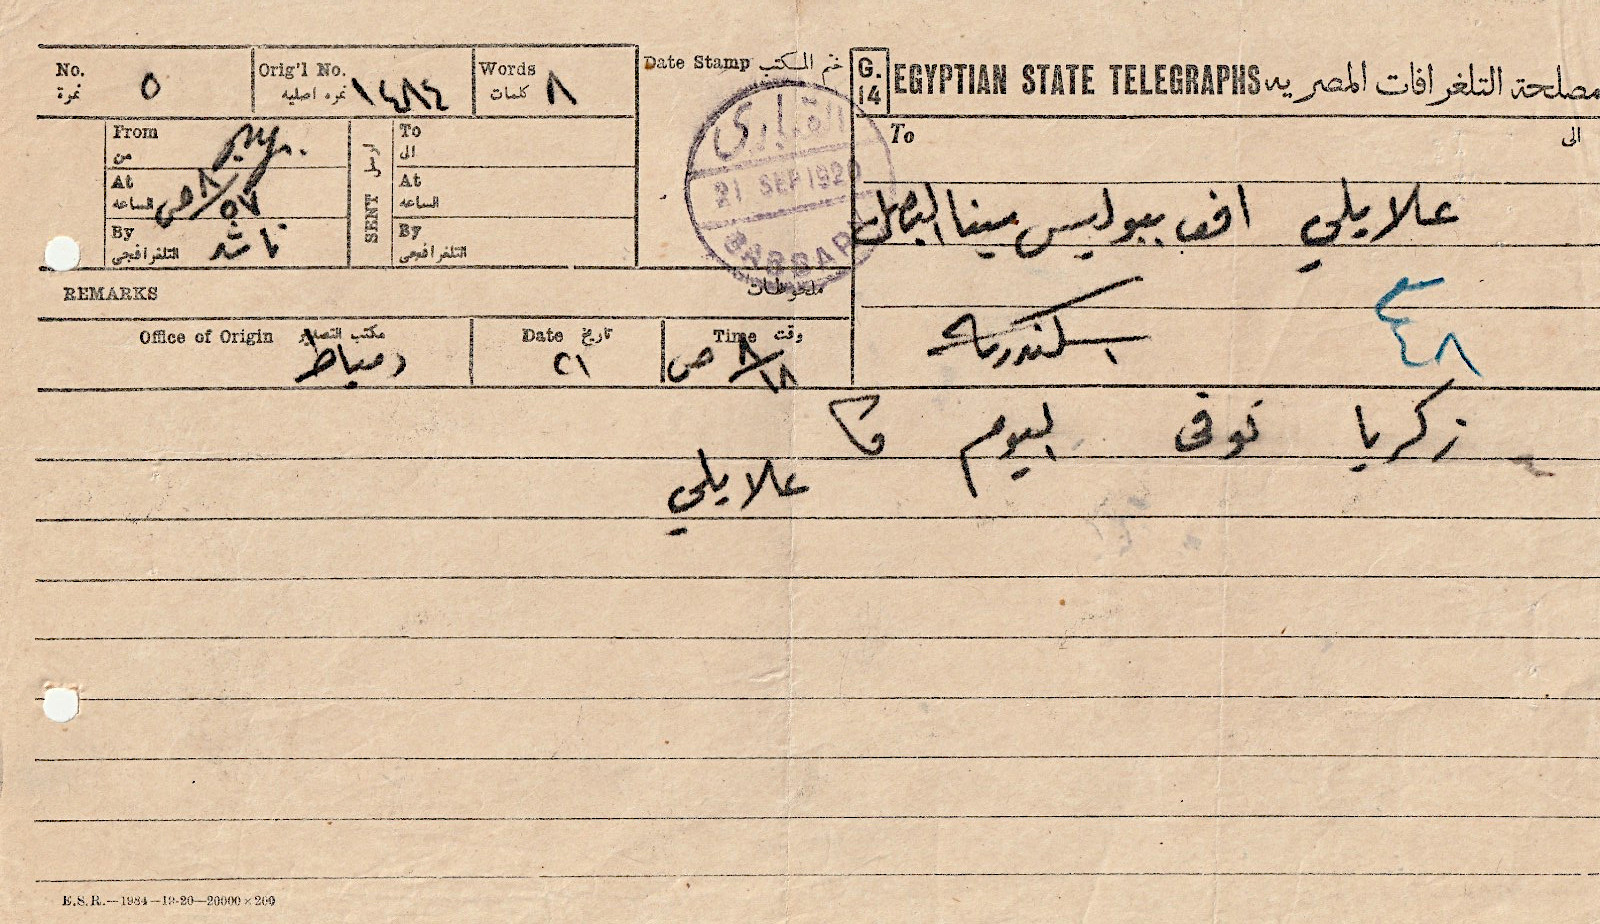 No. نمرة ٥
Orig'l No. نمره اصليه ١٤٨١٤
Words كلمات ٨
Date Stamp ختم المكتب
G. 14
EGYPTIAN STATE TELEGRAPHS مصلحة التلغرافات المصريه
From من
At الساعة ٨/٥٧ ص
By التلغرافجى ناشد
SENT ارسل
To الى
At الساعة
By التلغرافجى
القبارى
21 SEP 1920
GABBARI
To الى
علايلي افـ ببوليس مينا البصل
اسكندريه
٤٨
REMARKS ملحوظات
Office of Origin مكتب التصدير دمياط
Date تاريخ ٢١
Time وقت ٨/١٨ ص
زكريا توفى اليوم
علايلي
E.S.R.—1984—19-20—20000×200